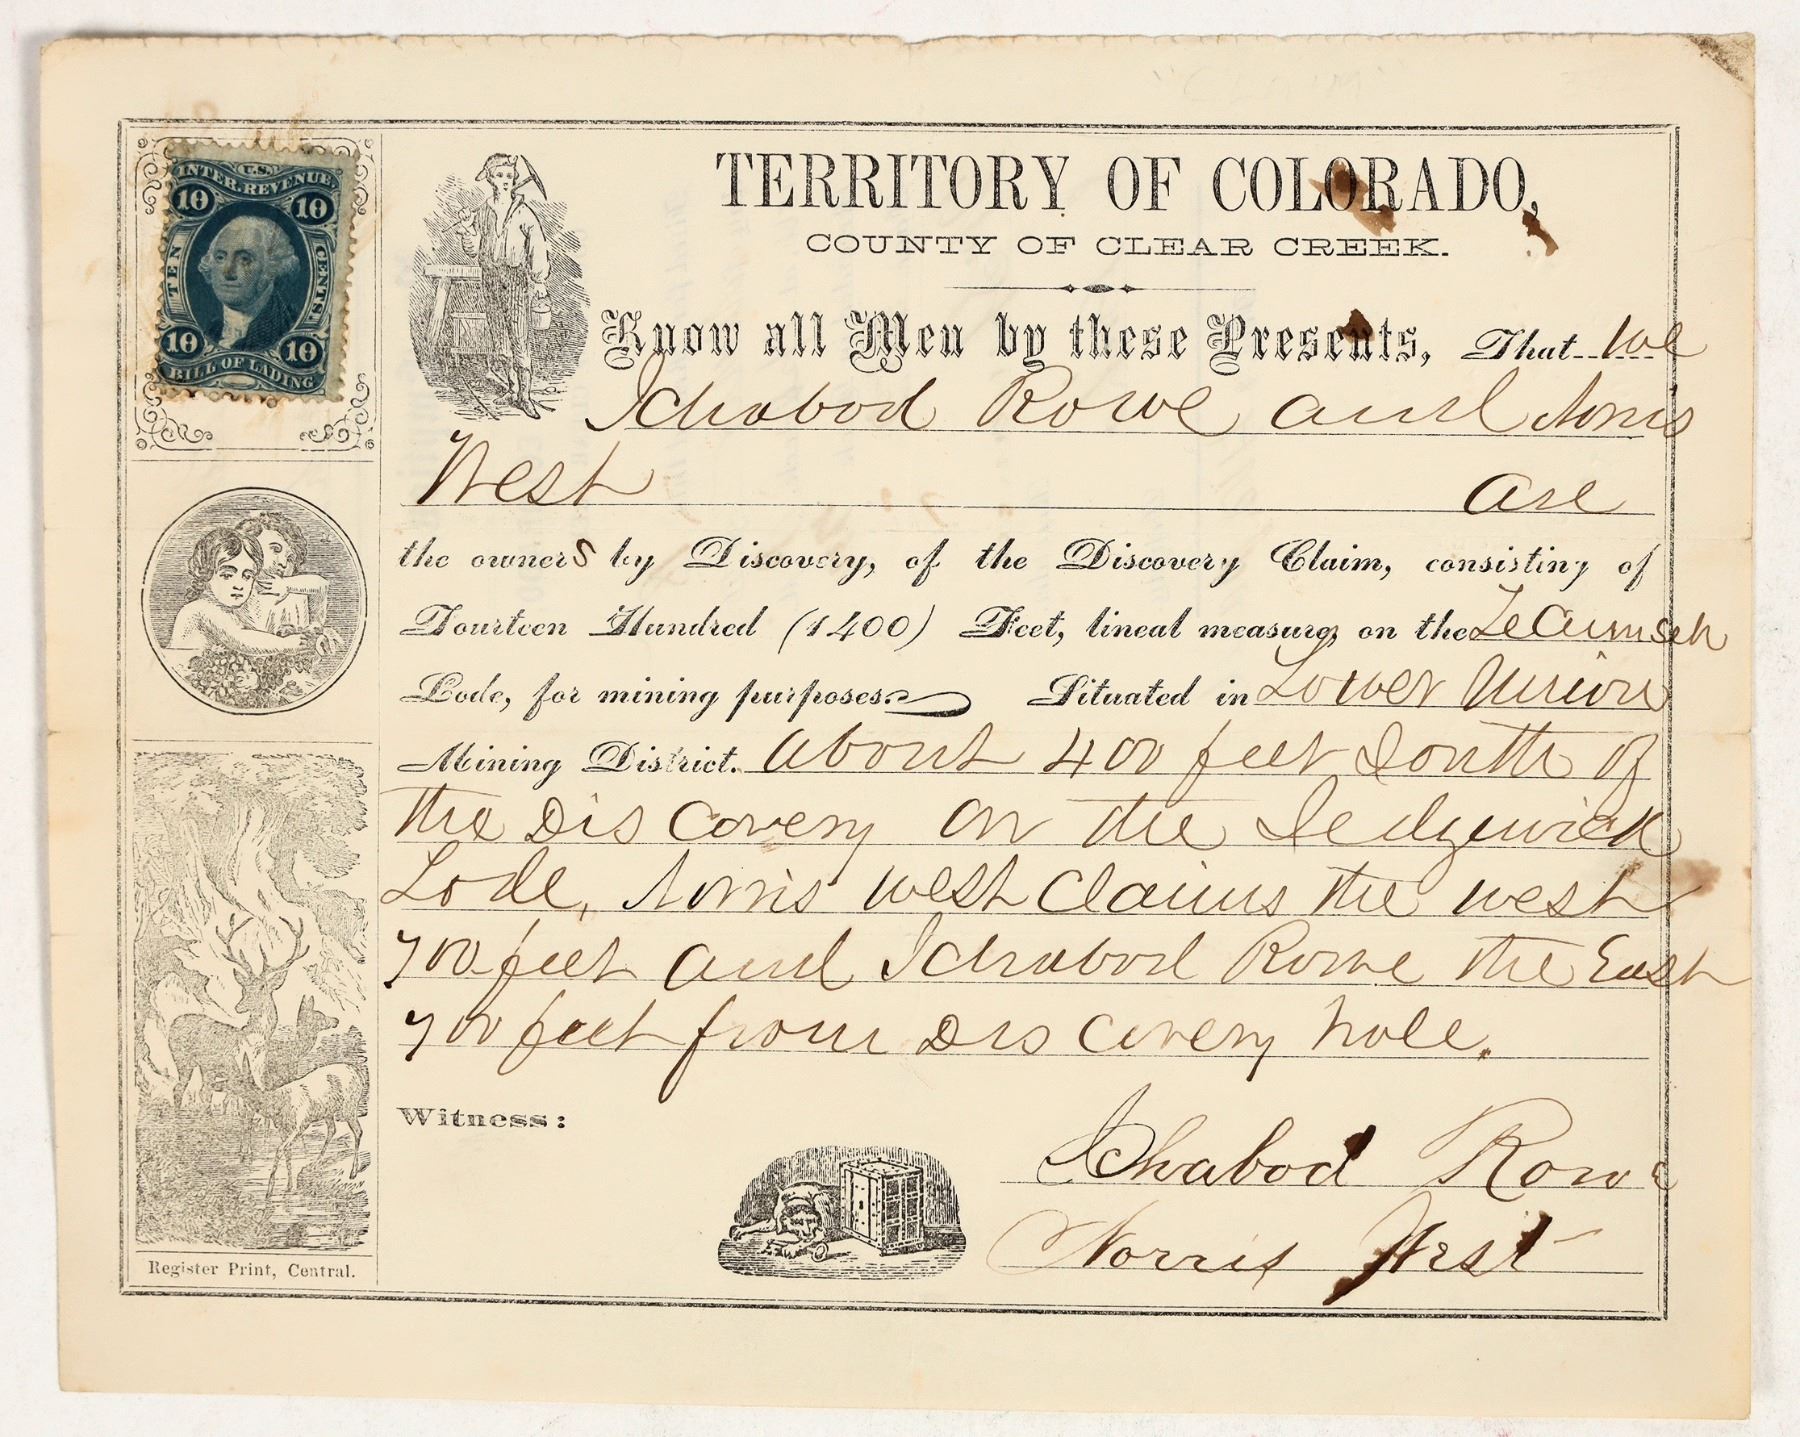 U.S.
INTER. REVENUE.
10 10
TEN CENTS.
10 10
BILL OF LADING
TERRITORY OF COLORADO,
COUNTY OF CLEAR CREEK.
Know all Men by these Presents, That we
Ichabod Rowe and Norris
West are
the owners by Discovery, of the Discovery Claim, consisting of
Fourteen Hundred (1400) Feet, lineal measure, on the Tecumseh
Lode, for mining purposes. Situated in Lower Union
Mining District. About 400 feet South of
the Discovery on the Sedgewick
Lode, Norris west Claims the west
700 feet and Ichabod Rowe the East
700 feet from Discovery hole.
Witness:
Ichabod Rowe
Norris West
Register Print, Central.